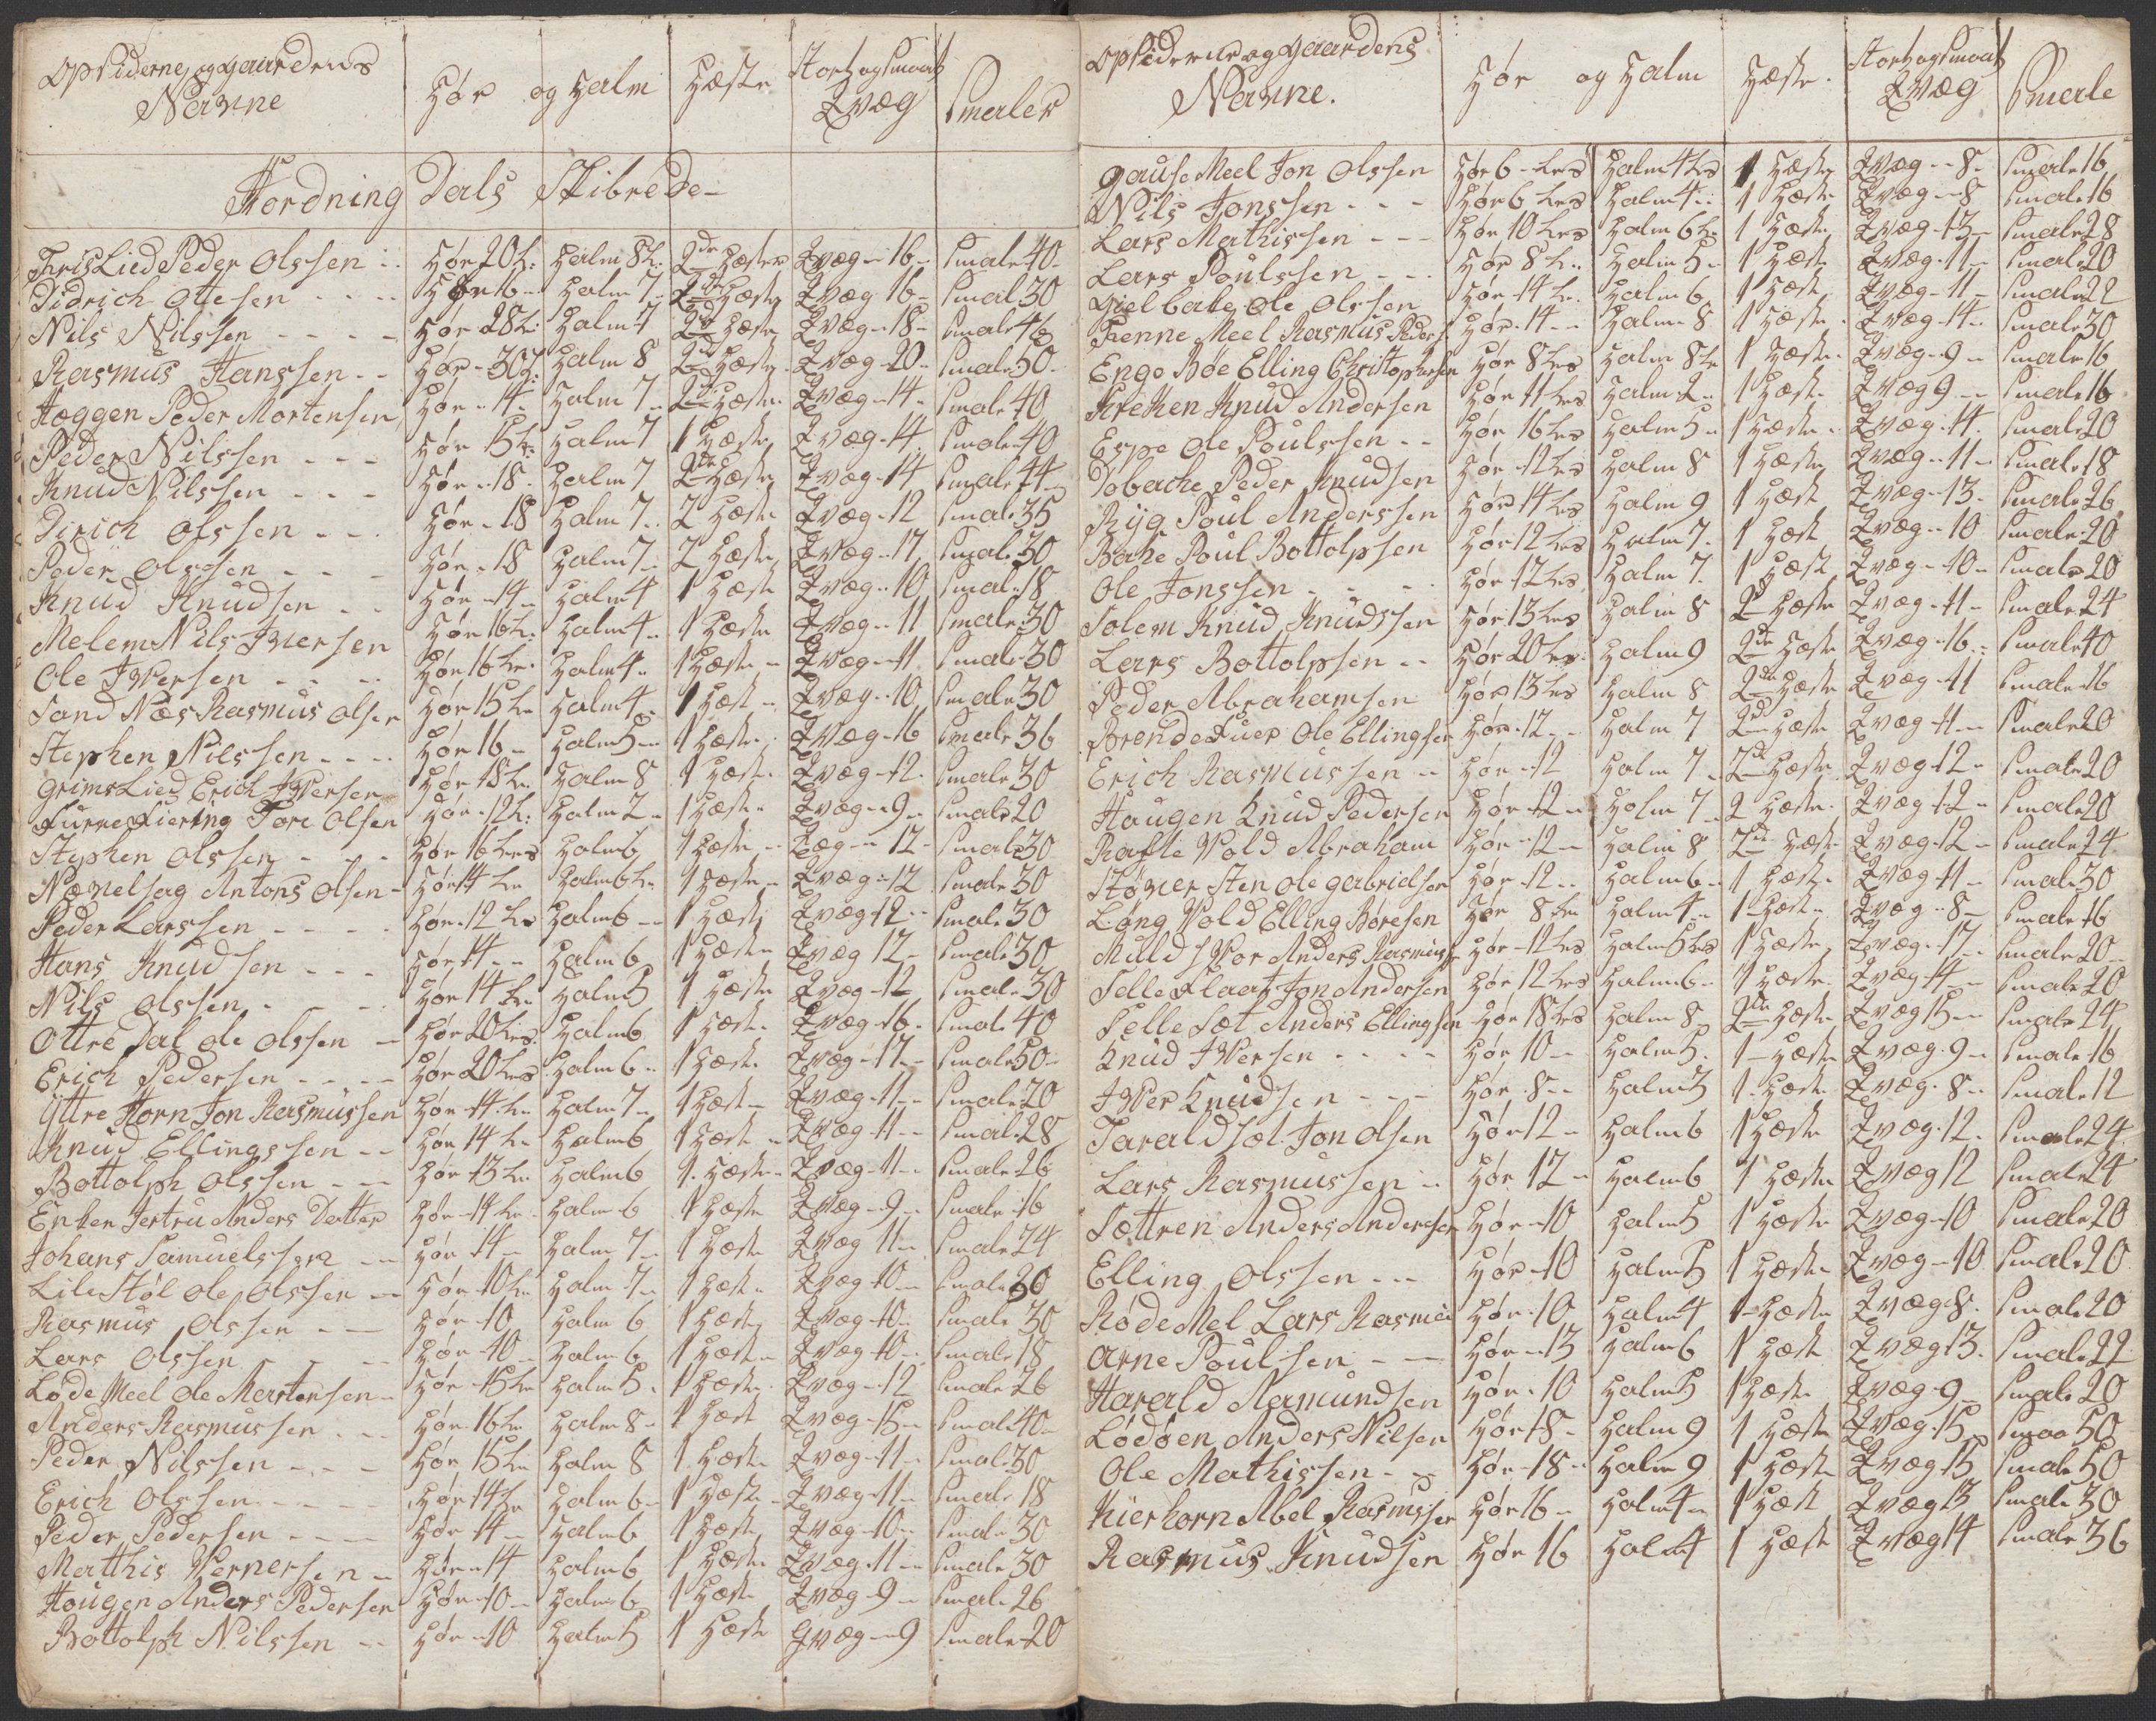 Opsiderne og gaardens
Navne
Hør og Halm Hæste Stort og Smaat Qvæg Smaler
Hordning Dals Skibrede
Fris Lied Peder Olssen Hør 20 L: Halm 8 L: 2de Hæster Qvæg 16 Smale 40
Didrich Ottesen Hør 16 Halm 7 2de Hæste Qvæg 16 Smale 30
Nils Nilssen Hør 28 L: Halm 7 2de Hæste Qvæg 18 Smale 46
Rasmus Hanssen Hør 30 L: Halm 8 2de Hæste Qvæg 20 Smale 50
Hæggen Peder Mortensen Hør 14 Halm 7 2de Hæste Qvæg 14 Smale 40
Peder Nilssen Hør 15 L: Halm 7 1 Hæste Qvæg 14 Smale 40
Knud Nilssen Hør 18 Halm 7 2de Hæste Qvæg 14 Smale 44
Dirich Olssen Hør 18 Halm 7 2 Hæste Qvæg 12 Smale 35
Peder Olssen Hør 18 Halm 7 2 Hæste Qvæg 17 Smale 30
Knud Knudsen Hør 14 Halm 4 1 Hæste Qvæg 10 Smale 18
Melem Nils Iversen Hør 16 L: Halm 4 1 Hæste Qvæg 11 Smale 30
Ole Iversen Hør 16 Les Halm 4 1 Hæste Qvæg 11 Smale 30
Sand Næs Rasmus Olsen Hør 15 Les Halm 4 1 Hæst Qvæg 10 Smale 30
Stephen Nilssen Hør 16 Halm 5 1 Hæste Qvæg 16 Smale 36
Grims Lied Erich Iversen Hør 18 Les Halm 8 1 Hæste Qvæg 12 Smale 30
Furne Fiering Tore Olsen Hør 12 L: Halm 2 1 Hæste Qvæg 9 Smale 20
Stephen Olssen Hør 16 Les Halm 6 1 Hæste Qvæg 12 Smale 30
Nævelsag Antons Olsen Hør 14 Les Halm 6 L: 1 Hæste Qvæg 12 Smale 30
Peder Larssen Hør 12 Les Halm 6 1 Hæste Qvæg 12 Smale 30
Hans Knudsen Hør 14 Halm 6 1 Hæste Qvæg 12 Smale 30
Nils Olssen Hør 14 Les Halm 5 1 Hæste Qvæg 12 Smale 30
Ottre Dal Ole Olssen Hør 20 Les Halm 6 1 Hæste Qvæg 16 Smale 40
Erich Pedersen Hør 20 Les Halm 6 1 Hæste Qvæg 17 Smale 50
Yttre Horn Jon Rasmussen Hør 14 Les Halm 7 1 Hæste Qvæg 11 Smale 20
Knud Ellingssen Hør 14 Les Halm 6 1 Hæste Qvæg 11 Smale 28
Bottolph Olssen Hør 13 Les Halm 6 1 Hæste Qvæg 11 Smale 26
Enken Jertru Anders Datter Hør 14 Les Halm 6 1 Hæste Qvæg 9 Smale 16
Johans Samuelssen Hør 14 Halm 7 1 Hæste Qvæg 11 Smale 24
Lile Støl Ole Olssen Hør 10 Les Halm 7 1 Hæste Qvæg 10 Smale 30
Rasmus Olssen Hør 10 Halm 6 1 Hæste Qvæg 10 Smale 30
Lars Olssen Hør 10 Halm 6 1 Hæste Qvæg 10 Smale 18
Løde Meel Ole Martensen Hør 15 Les Halm 5 1 Hæste Qvæg 12 Smale 26
Anders Rasmussen Hør 16 Les Halm 8 1 Hæst Qvæg 15 Smale 40
Peder Nilssen Hør 15 Les Halm 8 1 Hæste Qvæg 11 Smale 30
Erich Olssen Hør 14 Les Halm 6 1 Hæste Qvæg 11 Smale 18
Peder Pedersen Hør 14 Halm 6 1 Hæste Qvæg 10 Smale 30
Matthis Vernersen Hør 14 Halm 6 1 Hæste Qvæg 11 Smale 30
Hougen Anders Pedersen Hør 10 Halm 6 1 Hæste Qvæg 9 Smale 26
Bottolph Nilssen Hør 10 Halm 5 1 Hæste Qvæg 9 Smale 20
Opsiderne og Gaardens
Navne.
Hør og Halm Hæste. Stort og Smaat Qvæg Smale
Gause Meel Jon Olssen Hør 6 Les Halm 4 Les 1 Hæste Qvæg 8 Smale 16
Nils Jonssen Hør 6 Les Halm 4 1 Hæste Qvæg 8 Smale 16
Lars Mathissen Hør 10 Les Halm 6 L: 1 Hæste Qvæg 13 Smale 28
Lars Poulssen Hør 8 L: Halm 5 1 Hæste Qvæg 11 Smale 20
Miel bate Ole Olssen Hør 14 Le. Halm 6 1 Hæste Qvæg 11 Smale 22
Tenne Meel Rasmus Peders. Hør 14 Halm 8 1 Hæste Qvæg 14 Smale 30
Enge Bøe Elling Christophersen Hør 8 Les Halm 8 Le 1 Hæste Qvæg 9 Smale 16
Kreken Knud Andersen Hør 11 Les Halm 2 1 Hæste Qvæg 9 Smale 16
Espe Ole Poulssen Hør 16 Les Halm 5 1 Hæste Qvæg 14 Smale 20
Dobache Peder Knudsen Hør 12 Les Halm 8 1 Hæste Qvæg 11 Smale 18
Ryg Poul Anderssen Hør 14 Les Halm 9 1 Hæst Qvæg 13 Smale 26
Bahe Poul Bottolpsen Hør 12 Les Halm 7 1 Hæst Qvæg 10 Smale 20
Ole Jonssen Hør 12 Les Halm 7. 1 Hæst Qvæg 10 Smale 20
Solem Knud Knudssen Hør 13 Les Halm 8 2de Hæste Qvæg 11 Smale 24
Lars Bottolpsen Hør 20 Les Halm 9 2de Hæste Qvæg 16 Smale 40
Peder Abrahamsen Hør 13 Les Halm 8 2de Hæste Qvæg 11 Smale 16
Brendefuer Ole Ellingsen Hør 12 Halm 7 2de Hæste Qvæg 11 Smale 20
Erich Rasmussen Hør 12 Halm 7 2de Hæste Qvæg 12 Smale 20
Haugen Knud Pedersen Hør 12 Halm 7 2 Hæste Qvæg 12 Smale 20
Rafte Vold Abraham Hør 12 Halm 8 2de Hæste Qvæg 12 Smale 24
Støver Sten Ole Gabrielsen Hør 12 Halm 6 1 Hæste Qvæg 11 Smale 30
Lang Vold Elling Børesen Hør 8 Les Halm 4 1 Hæste Qvæg 8 Smale 16
Muldsvor Anders Rasmuss Hør 12 Les Halm 5 Les 1 Hæste Qvæg 17 Smale 20
Selle Flaat Jon Andersen Hør 12 Les Halm 6 1 Hæste Qvæg 14 Smale 20
Selle Sæt Anders Ellingsen Hør 18 Les Halm 8 2de Hæste Qvæg 15 Smale 24
Knud Iversen Hør 10 Halm 5 1 Hæste Qvæg 9 Smale 16
Iver Knudsen Hør 8 Halm 5 1 Hæste Qvæg 8 Smale 12
Tarald sæt Jon Olsen Hør 12 Halm 6 1 Hæste Qvæg 12 Smale 24
Lars Rasmussen Hør 12 Halm 6 1 Hæste Qvæg 12 Smale 24
Sættren Anders Anderssen Hør 10 Halm 5 1 Hæste Qvæg 10 Smale 20
Elling Olssen Hør 10 Halm 5 1 Hæste Qvæg 10 Smale 20
Røde Mel Lars Rasmus Hør 10 Halm 4 1 Hæste Qvæg 8 Smale 20
Arne Poulsen Hør 13 Halm 6 1 Hæst Qvæg 13 Smale 22
Harald Aamundsen Hør 10 Halm 5 1 Hæste Qvæg 9 Smale 20
Lødøen Anders Nilsen Hør 18 Halm 9 1 Hæste Qvæg 15 Smaa 50
Ole Mathissen Hør 18 Halm 9 1 Hæste Qvæg 15 Smale 50
Kierhorn Abel Rasmssen Hør 16 Halm 4 1 Hæst Qvæg 13 Smale 30
Rasmus Knudsen Hør 16 Halm 4 1 Hæst Qvæg 14 Smale 36